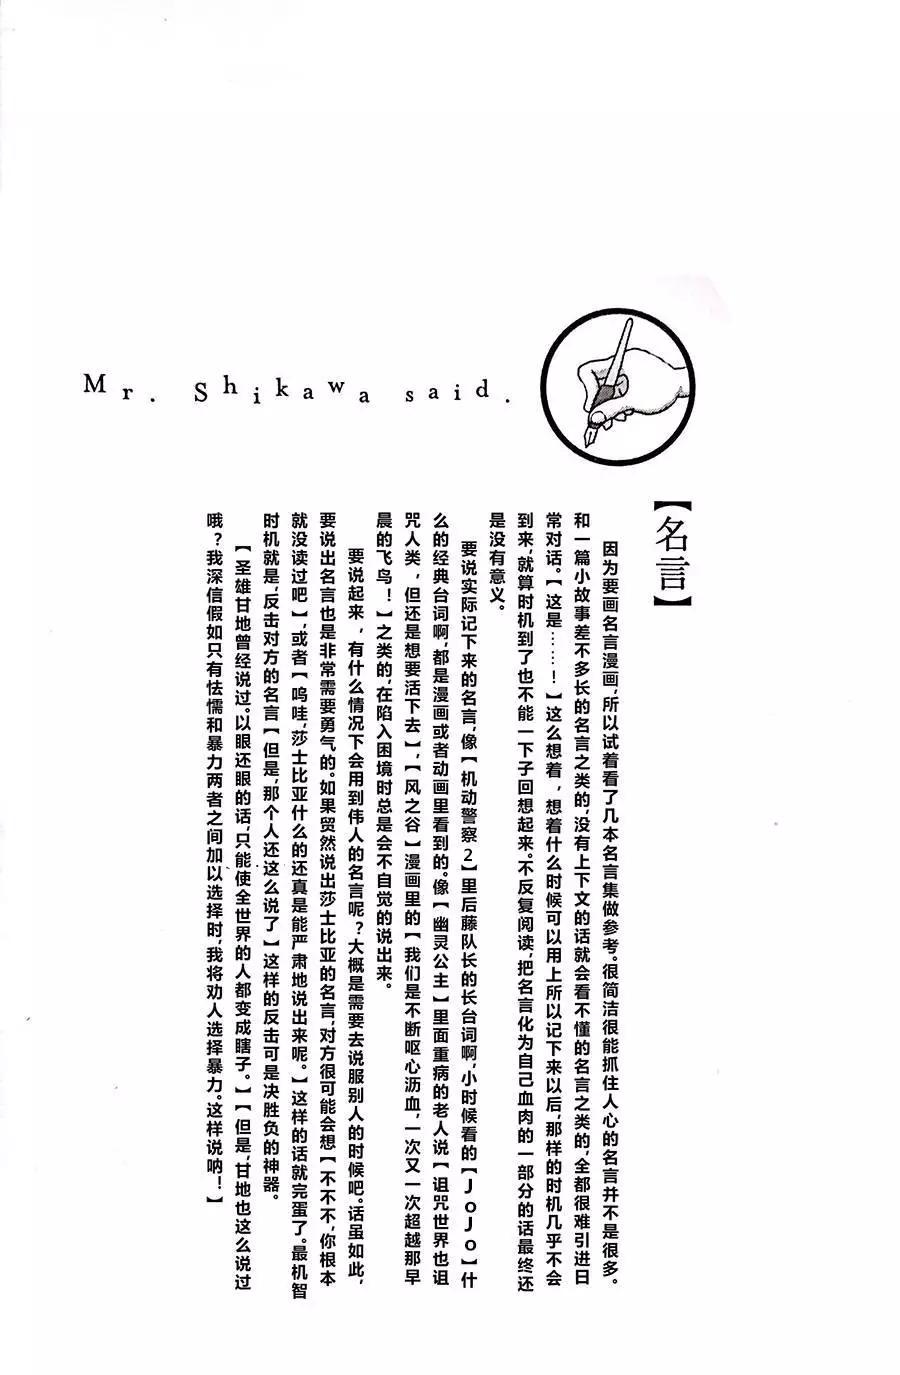 Mr. Shikawa said.
【名言】
因为要画名言漫画，所以试着看了几本名言集做参考。很简洁很能抓住人心的名言并不是很多。
和一篇小故事差不多长的名言之类的，没有上下文的话就会看不懂的名言之类的，全都很难引进日
常对话。【这是……！】这么想着，想着什么时候可以用上所以记下来以后，那样的时机几乎不会
到来，就算时机到了也不能一下子回想起来。不反复阅读，把名言化为自己血肉的一部分的话最终还
是没有意义。
要说实际记下来的名言，像【机动警察2】里后藤队长的长台词啊，小时候看的【JoJo】什
么的经典台词啊，都是漫画或者动画里看到的。像【幽灵公主】里面重病的老人说【诅咒世界也诅
咒人类，但还是想要活下去】，【风之谷】漫画里的【我们是不断呕心沥血，一次又一次超越那早
晨的飞鸟！】之类的，在陷入困境时总是会不自觉的说出来。
要说起来，有什么情况下会用到伟人的名言呢？大概是需要去说服别人的时候吧。话虽如此，
要说出名言也是非常需要勇气的。如果贸然说出莎士比亚的名言，对方很可能会想【不不不，你根本
就没读过吧】，或者【呜哇，莎士比亚什么的还真是能严肃地说出来呢。】这样的话就完蛋了。最机智
时机就是，反击对方的名言【但是，那个人还这么说了】这样的反击可是决胜负的神器。
【圣雄甘地曾经说过。以眼还眼的话，只能使全世界的人都变成瞎子。】【但是，甘地也这么说过
哦？我深信假如只有怯懦和暴力两者之间加以选择时，我将劝人选择暴力。这样说呐！】